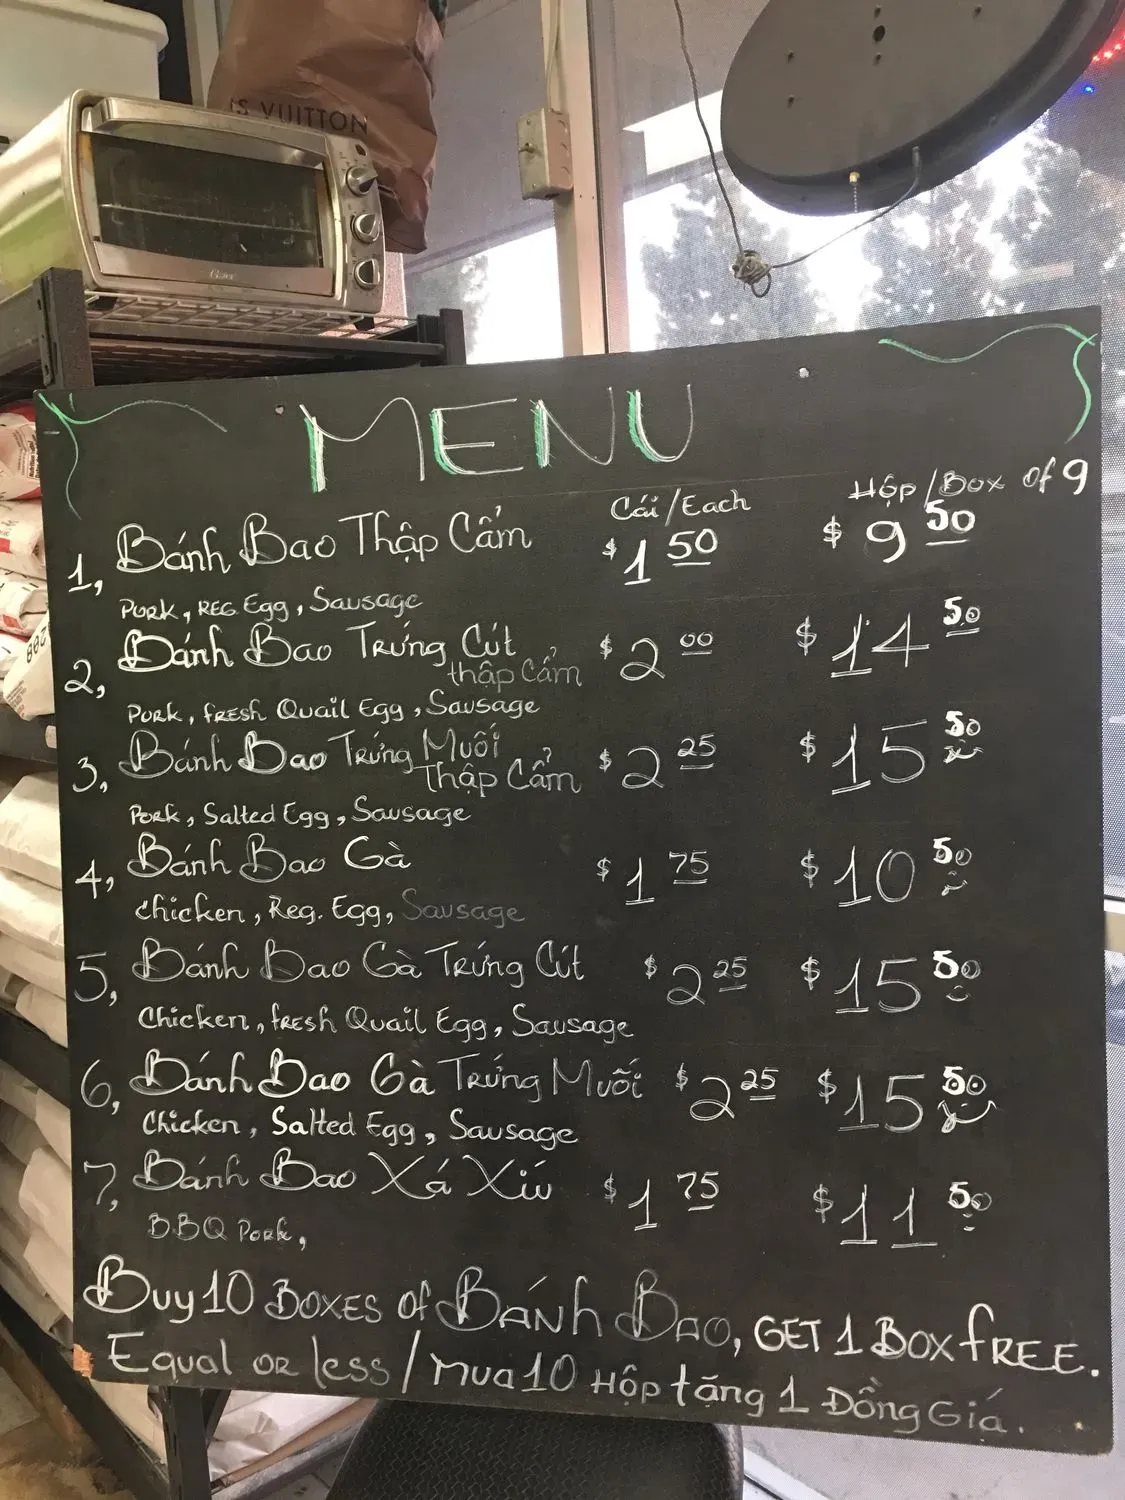 S VUITTON
Oster
MENU
Cái/Each Hộp/Box of 9
1, Bánh Bao Thập Cẩm $1 50 $9 50
Pork, Reg. Egg, Sausage
2, Bánh Bao Trứng Cút thập Cẩm $2 00 $14 50
Pork, fresh Quail Egg, Sausage
3, Bánh Bao Trứng Muối Thập Cẩm $2 25 $15 50
Pork, Salted Egg, Sausage
4, Bánh Bao Gà $1 75 $10 50
Chicken, Reg. Egg, Sausage
5, Bánh Bao Gà Trứng Cút $2 25 $15 50
Chicken, fresh Quail Egg, Sausage
6, Bánh Bao Gà Trứng Muối $2 25 $15 50
Chicken, Salted Egg, Sausage
7, Bánh Bao Xá Xíu $1 75 $11 50
BBQ Pork,
Buy 10 Boxes of Bánh Bao, GET 1 Box fREE.
Equal or less / Mua 10 Hộp tặng 1 Đồng Giá.